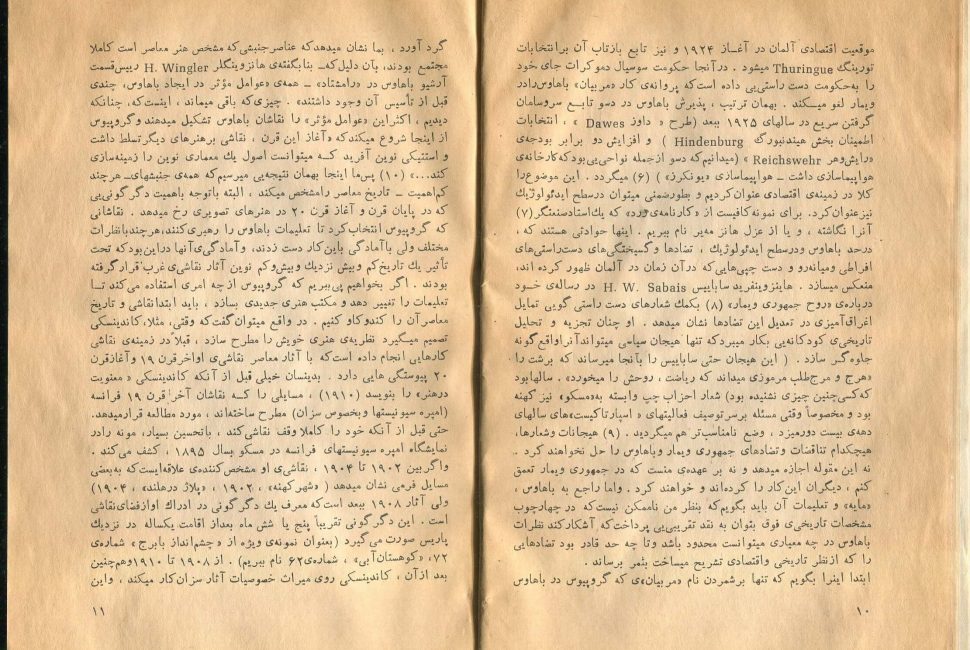 موقعیت اقتصادی آلمان در آغـاز ۱۹۲۴ و نیز تابع بازتاب آن برانتخابات
تورینگ Thuringue میشود . درآنجا حکومت سوسیال دموکرات جای خود
را به‌حکومت دست راستی‌یی داده است‌که پروانه‌ی کار «مربیان» باهاوس‌رادر
ویمار لغو میـکند . بهمان ترتیب ، پذیرش باهاوس در دسو تابـع سروسامان
گرفتن سریع در سالهای ۱۹۲۵ ببعد (طرح « داوز Dawes » ، انتخابات
اطمینان بخش هیندنبورگ Hindenburg ) و افزایش دو برابر بودجه‌ی
«رایش‌وهر Reichswehr » (میدانیم‌که دسو ازجمله نواحی‌یی بودکه کارخانه‌ی
هواپیماسازی داشت ـ هواپیماسازی «یونکرز» ) (۶) میگردد . این موضوع‌را
کلا در زمینه‌ی اقتصادی عنوان‌کردیم و بطورضمنی میتوان درسطح ایدئولوژیك
نیزعنوان‌کرد. برای نمونه کافیست از «کارنامه‌ی ورد» که یك‌استادصنعتگر(۷)
آنرا نگاشته ، و یا از عزل هانز مه‌یر نام ببریم . اینها حوادثی هستند که ،
درحد باهاوس ودرسطح ایدئولوژیك ، تضادها وگسیختگی‌های دست‌راستی‌های
افراطی ومیانه‌رو و دست چپی‌هایی‌که درآن زمان در آلمان ظهور کرده اند،
منعکس میسازد . هاینزوینفرید ساباییس H. W. Sabais در رساله‌ی خـود
درباره‌ی «روح جمهوری ویمار» (۸) بکمك شعارهای دست راستی گویی تمایل
اغراق‌آمیزی در تعدیل این تضادها نشان میدهد . او چنان تجزیه و تحلیل
تاریخی‌ی کودکانه‌یی بکار میبردکه تنها هیجان سیاسی میتواندآنراواقع‌گونه
جلوه‌گر سازد . ( این هیجان حتی ساباییس را بآنجا میرساند که برشت را
«هرج و مرج‌طلب مرموزی میداند که ریاضت ، روحش را میخورد» . سالهابود
که‌کسی‌چنین چیزی نشنیده بود) شعار احزاب چپ وابسته به‌«مسکو» نیز کهنه
بود و مخصوصاً وقتی مسئله برسرتوصیف فعالیتهای « اسپارتاکیست»های سالهای
دهه‌ی بیست دورمیزد ، وضع نامناسب‌تر هم میگردید . (۹) هیجانات وشعارها،
هیچکدام تناقضات وتضادهای جمهوری ویمار وباهاوس را حل نخواهند کرد .
نه این مقوله اجازه میدهد و نه بر عهده‌ی منست که در جمهوری ویمار تعمق
کنم ، دیگران این‌کار را کرده‌اند و خواهند کرد . واما راجع به باهاوس ،
«مایه» و تعلیمات آن باید بگویم‌که بنظر من ناممکن نیست‌که در چهارچوب
مشخصات تاریخی‌ی فوق بتوان به نقد تقریبی‌یی پرداخت‌که آشکارکند نظرات
باهاوس در چه معیاری میتوانست محدود باشد وتا چه حد قادر بود تضادهایی
را که ازنظر تاریخی واقتصادی تشریح میساخت بثمر برساند .
ابتدا اینرا بگویم که تنها برشمردن نام «مربیان»ی که گروپیوس در باهاوس
۱۰
گرد آورد ، بما نشان میدهدکه عناصرجنبشی‌که مشخص هنر معاصر است کاملا
مجتمع بودند، بآن دلیل‌که‌ـ بنابگفته‌ی هانزوینگلر H. Wingler رییس‌قسمت
آرشیو باهاوس در «رامشتاد» ـ همه‌ی «عوامل مؤثر در ایجاد باهاوس، چندی
قبل از تأسیس آن وجود داشتند» . چیزی‌که باقی میماند ، اینست‌که، چنانکه
دیدیم ، اکثراین «عوامل مؤثر» را نقاشان باهاوس تشکیل میدهند وگروپیوس
از اینجا شروع میکندکه «آغاز این قرن ، نقاشی برهنرهای دیگرتسلط داشت
و استتیکی نوین آفرید کـه میتوانست اصول یك معماری نوین را زمینه‌سازی
کند...» (۱۰) پس‌ما اینجا بهمان نتیجه‌یی میرسیم‌که همه‌ی جنبشهای‌ـ هرچند
کم‌اهمیت ـ تاریخ معاصر رامشخص میکند ، البته باتوجه باهمیت دگرگونی‌یی
که در پایان قرن و آغاز قرن ۲۰ در هنرهای تصویری رخ میدهد . نقاشانی
که گروپیوس انتخاب‌کرد تا تعلیمات باهاوس را رهبری‌کنند،هرچندبانظرات
مختلف ولی باآمادگی باین‌کار دست زدند، وآمادگی‌ی‌آنها دراین‌بودکه تحت
تأثیر یك تاریخ‌کم وبیش نزدیك وبیش‌وکم نوین آثار نقاشی‌ی غرب‌قرارگرفته
بودند . اگر بخواهیم پی‌ببریم که گروپیوس ازچه امری استفاده میکند تـا
تعلیمات را تغییر دهد و مکتب هنری جدیدی بسازد ، باید ابتدانقاشی و تاریخ
معاصرآن را کندوکاو کنیم . در واقع میتوان گفت‌که وقتی، مثلا،کاندینسکی
تصمیم میگیرد نظریه‌ی هنری خویش را مطرح سازد ، قبلا در زمینه‌ی نقاشی
کارهایی انجام داده است‌که با آثار معاصر نقاشی‌ی اواخرقرن ۱۹ وآغازقرن
۲۰ پیوستگی هایی دارد . بدینسان خیلی قبل از آنکه کاندینسکی « معنویت
درهنر» را بنویسد (۱۹۱۰) ، مسایلی را کـه نقاشان آخر قرن ۱۹ فرانسه
(امپره سیونیستها وبخصوص سزان) مطرح ساخته‌اند ، مورد مطالعه قرارمیدهد.
حتی قبل از آنکه خود را کاملا وقف نقاشی‌کند ، باتحسین بسیار، مونه رادر
نمایشگاه امپره سیونیستهای فرانسه در مسکو بسال ۱۸۹۵ ، کشف می‌کند .
واگربین ۱۹۰۲ تا ۱۹۰۴ ، نقاشی‌ی او مشخص‌کننده‌ی علاقه‌ایست‌که به‌بعضی
مسایل فرمی نشان میدهد («شهرکهنه» ، ۱۹۰۲ ، «پلاژ درهلند» ، ۱۹۰۴)
ولی آثار ۱۹۰۸ ببعد است‌که معرف یك دگرگونی در ادراك اوازفضای‌نقاشی
است . این دگرگونی تقریباً پنج یا شش ماه بعداز اقامت یکساله در نزدیك
پاریس صورت می‌گیرد (بعنوان نمونه‌ی ویژه از «چشم‌انداز بابرج» شماره‌ی
۷۲، «کوهستان‌آبی» ، شماره‌ی۶۲ نام ببریم) . از ۱۹۰۸ تا ۱۹۱۰وهم‌چنین
بعد ازآن ، کاندینسکی روی میراث خصوصیات آثار سزان‌کار میکند ، واین
۱۱